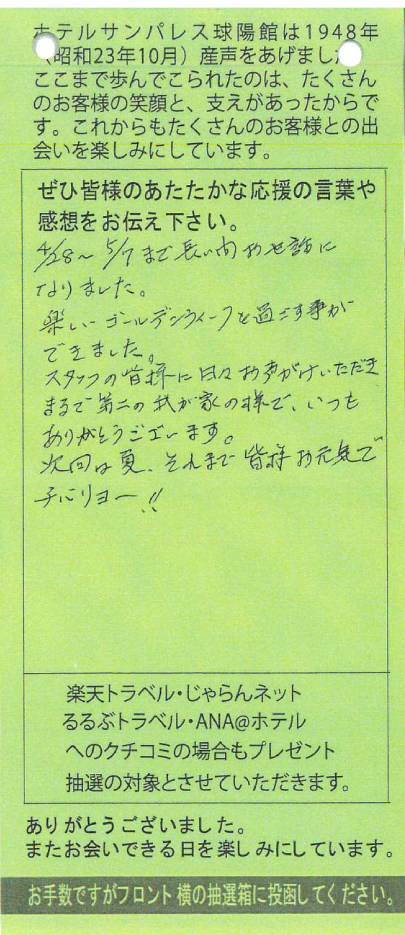 ホテルサンパレス球陽館は1948年
(昭和23年10月)産声をあげました
ここまで歩んでこられたのは、たくさん
のお客様の笑顔と、支えがあったからで
す。これからもたくさんのお客様との出
会いを楽しみにしています。
ぜひ皆様のあたたかな応援の言葉や
感想をお伝え下さい。
4/28〜5/7まで長い間お世話に
なりました。
楽しいゴールデンウィークを過ごす事が
できました。
スタッフの皆様に日々お声がけいただき
まるで第二の我が家の様で、いつも
ありがとうございます。
次回は夏、それまで皆様お元気で
チバリヨー!!
楽天トラベル・じゃらんネット
るるぶトラベル・ANA@ホテル
へのクチコミの場合もプレゼント
抽選の対象とさせていただきます。
ありがとうございました。
またお会いできる日を楽しみにしています。
お手数ですがフロント横の抽選箱に投函してください。